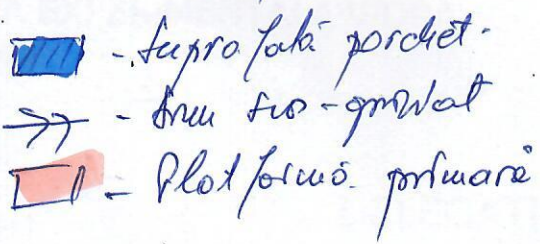 - Suprafată parchet.
- Drum tras-apropiat
- Platformă primară